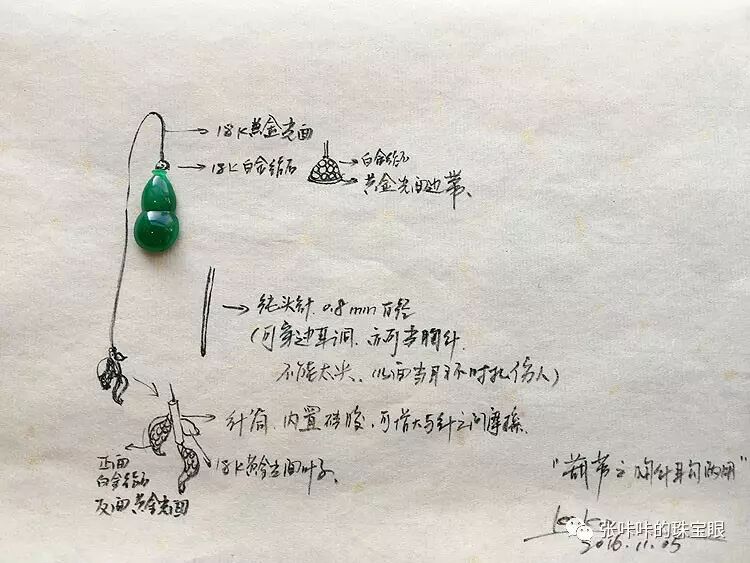 18K黄金光面
18K白金钻石
白金钻石
黄金光面边带、
钝头针 0.8mm直径
(可穿过耳洞、亦可当胸针
不能太尖、以防当耳环时扎伤人)
针筒、内置硅胶、可增大与针之间摩擦、
正面
白金钻石
反面黄金光面
18K黄金光面叶子、
"葫芦之胸针耳勾两用"
2016.11.05
张咔咔的珠宝眼